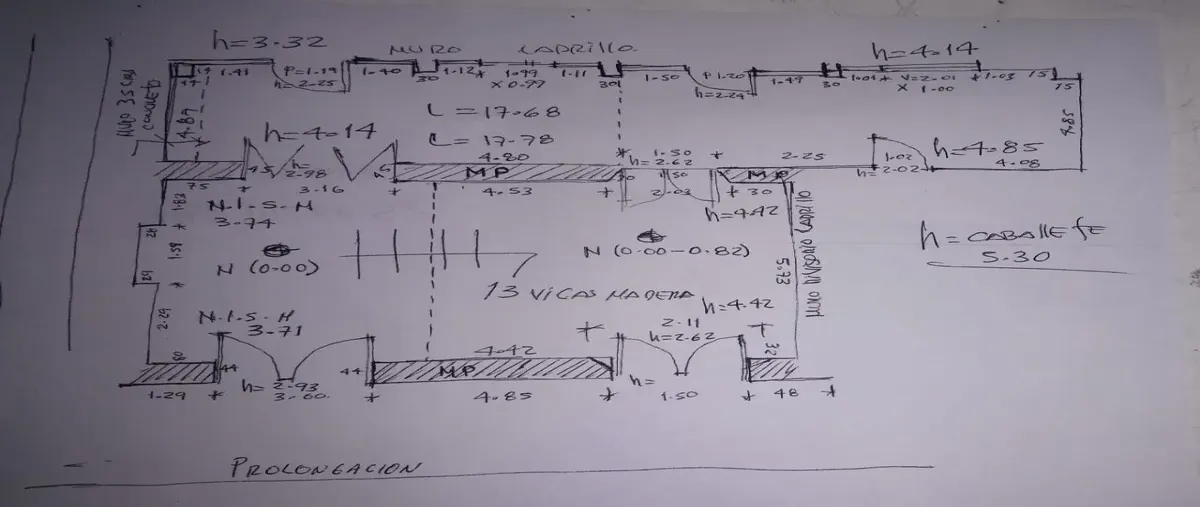 h=3.32
MURO LADRILLO
h=4.14
1.41
P=1.19
h=2.25
1.40
30
1.12
1.99
x 0.97
1.11
30
1.50
P 1.20
h=2.24
1.49
30
1.01
V=2.01
x 1.00
1.03
15
15
4.85
4.89
L = 17.68
L = 17.78
h=4.14
4.80
1.50
h=2.62
2.25
1.02
h=2.02
h=4.85
4.08
75
45
h=
2.98
3.16
MP
4.53
50
2.03
MP
30
N.I.S.M
3.74
1.83
h=4.42
26
1.59
29
N (0.00)
N (0.00-0.82)
5.73
MURO MEDIANO LADRILLO
h=CABALLETE
5.30
13 VIGAS MADERA
h=4.42
2.29
N.I.S.M
3.71
2.11
h=2.62
32
60
44
h= 2.93
3.60
44
4.42
MP
h=
1.29
4.85
1.50
48
PROLONGACION